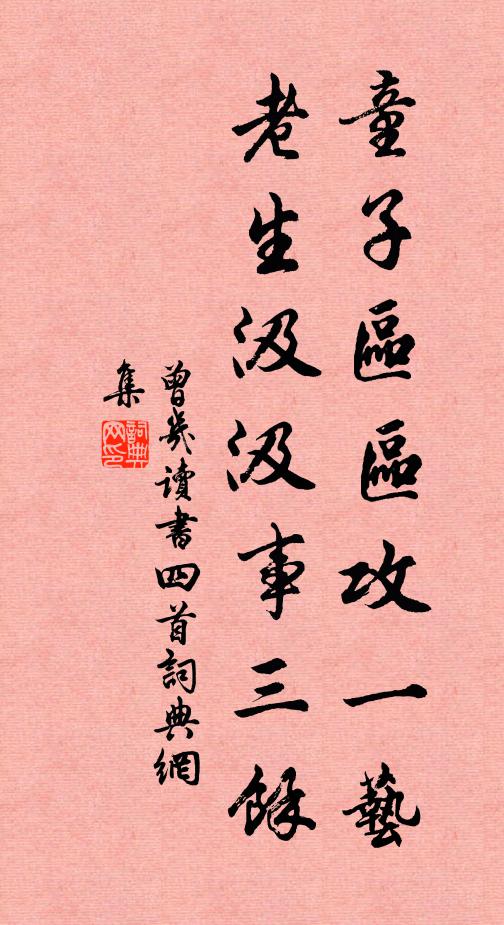 童子區區攻一藝
老生汲汲事三餘
曾幾讀書四首詞典網
集
詞典
网印